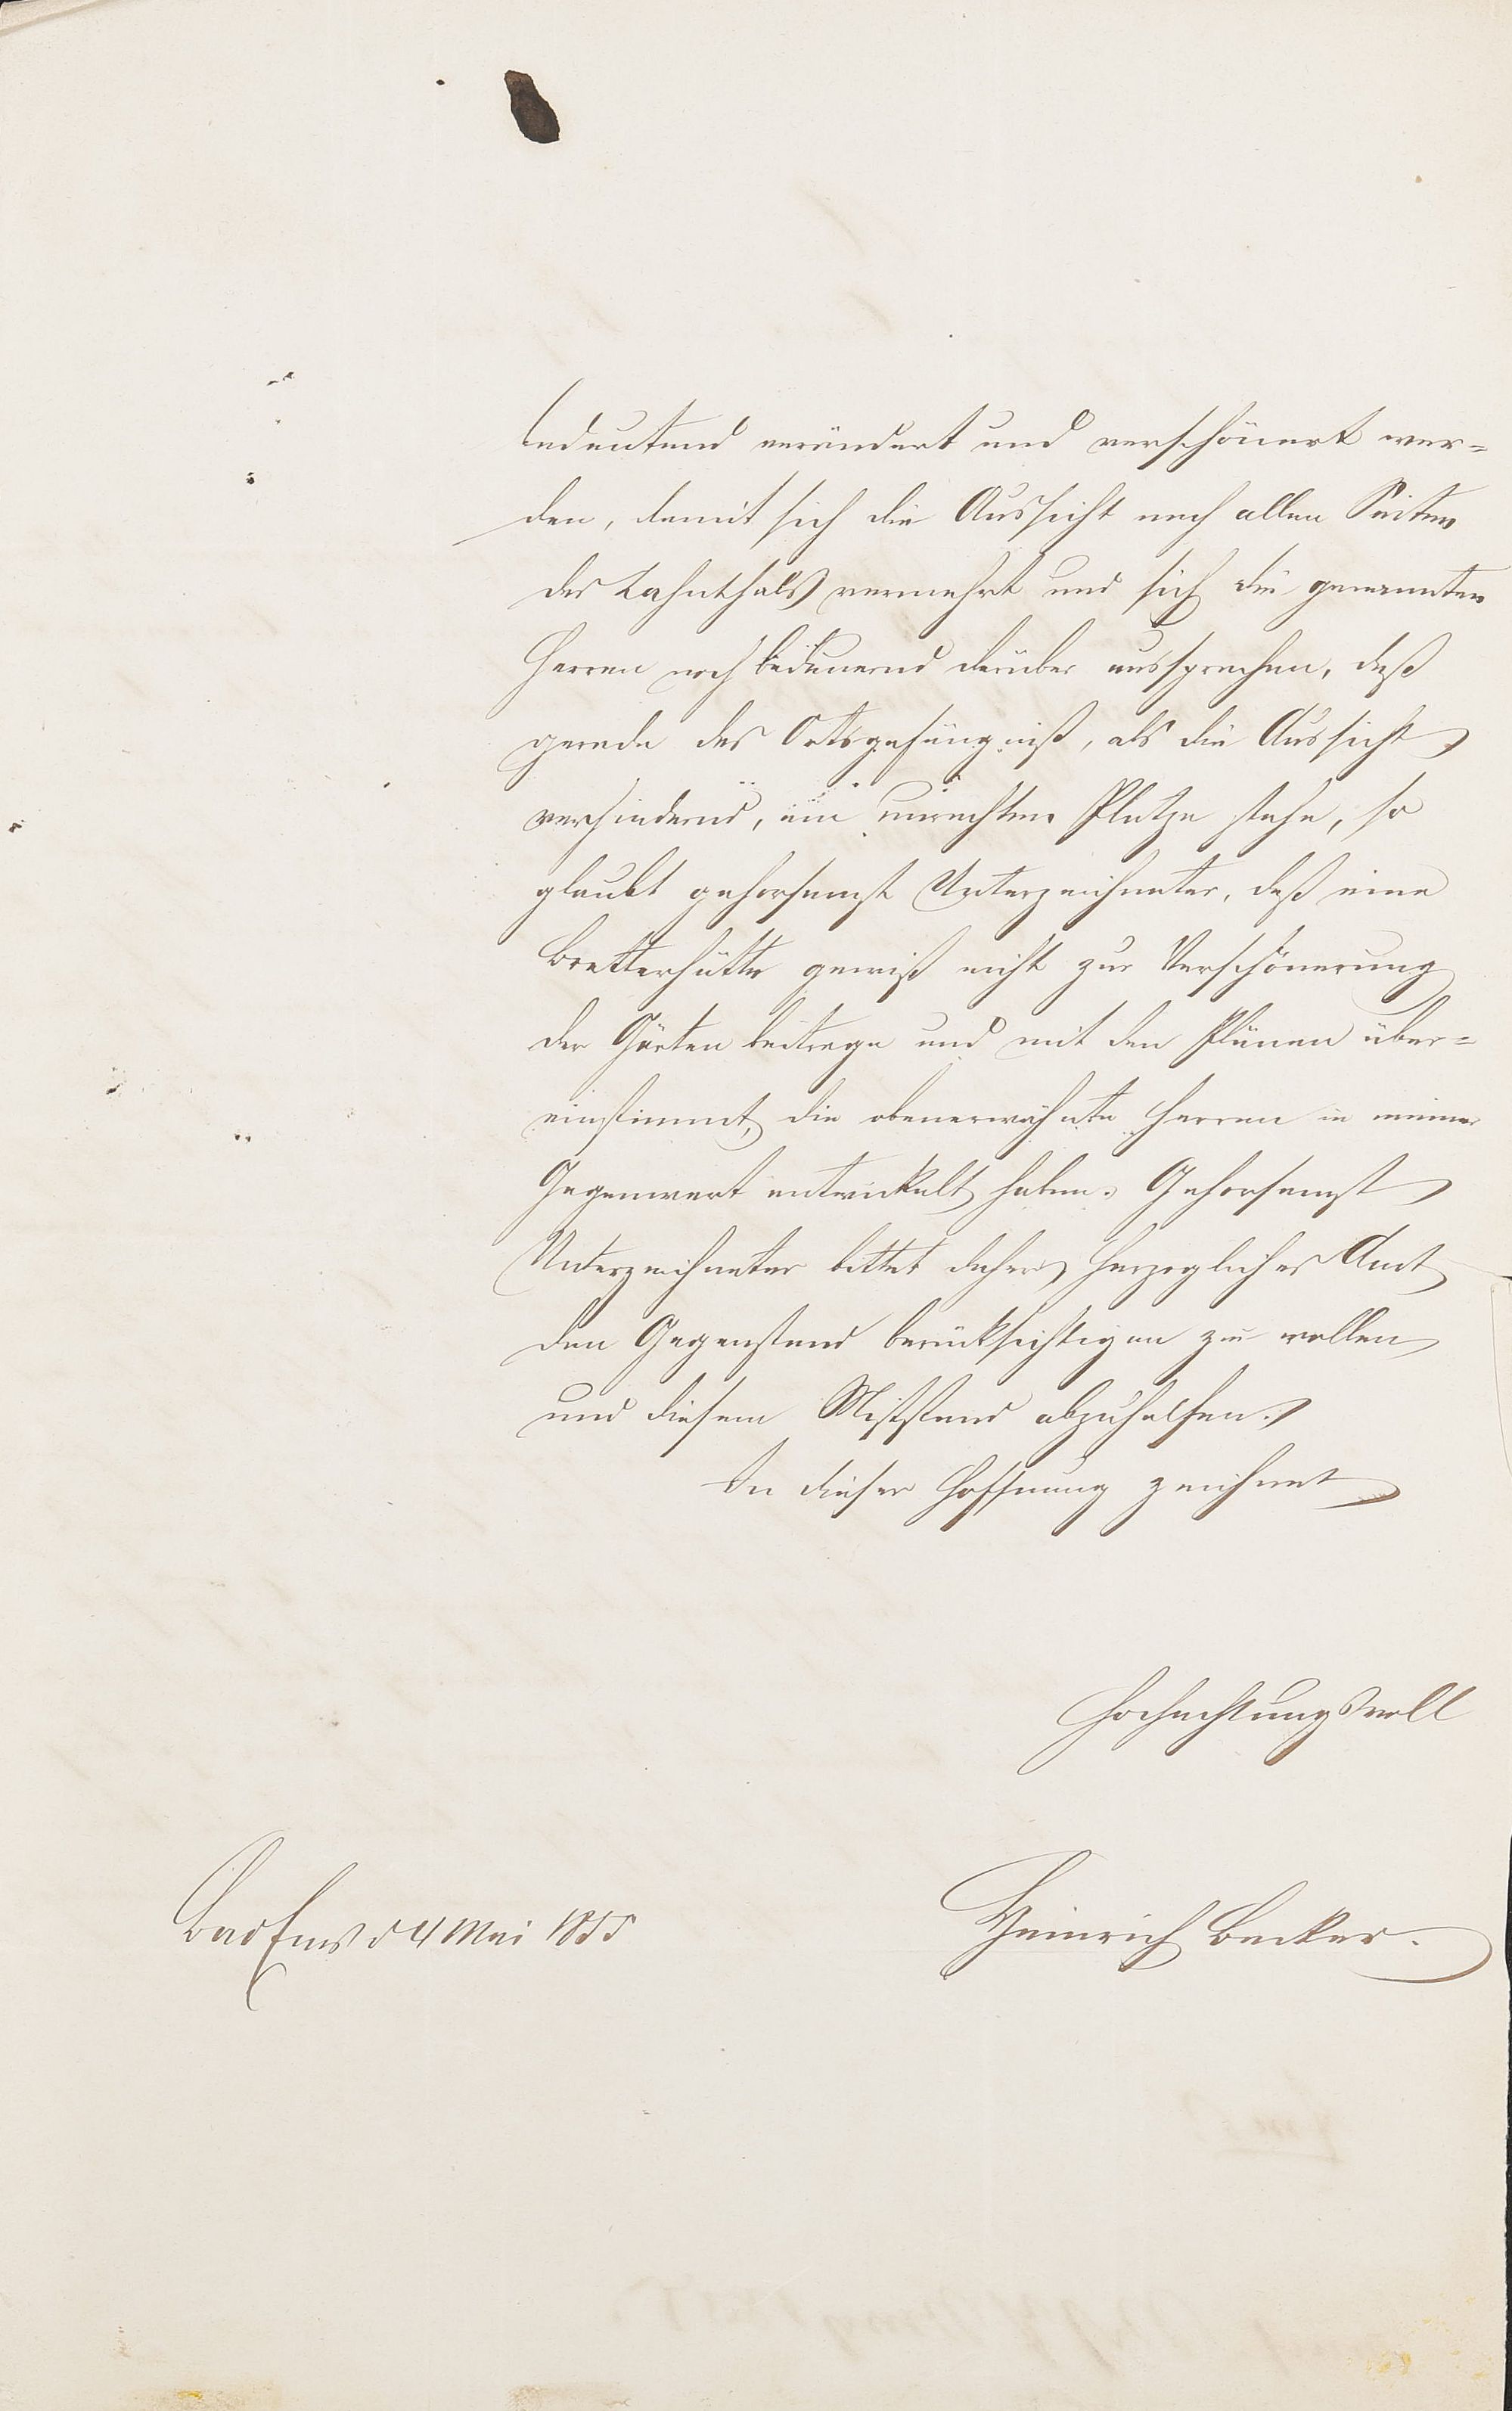 bedeutend verändert und verschönert wer=
den, damit sich die Aussicht nach allen Seiten
des Lahnthals vermehrt und sich die genannten
Herren noch bedauernd darüber aussprechen, daß
gerade das Ortsgefängniß, als die Aussicht
verhindernd, am unrechten Platze stehe, so
glaubt gehorsamst Unterzeichneter, daß eine
Bretterhütte gewiß nicht zur Verschönerung
der Gärten beitrage und mit den Plänen über=
einstimmt, die obenerwähnte Herren in meiner
Gegenwart entwickelt haben. Gehorsamst
Unterzeichneter bittet daher Herzogliches Amt
den Gegenstand berücksichtigen zu wollen
und diesem Mißstand abzuhelfen.
In dieser Hoffnung zeichnet
Hochachtungsvoll
Bad Ems d 4 Mai 1855
Heinrich Becker.